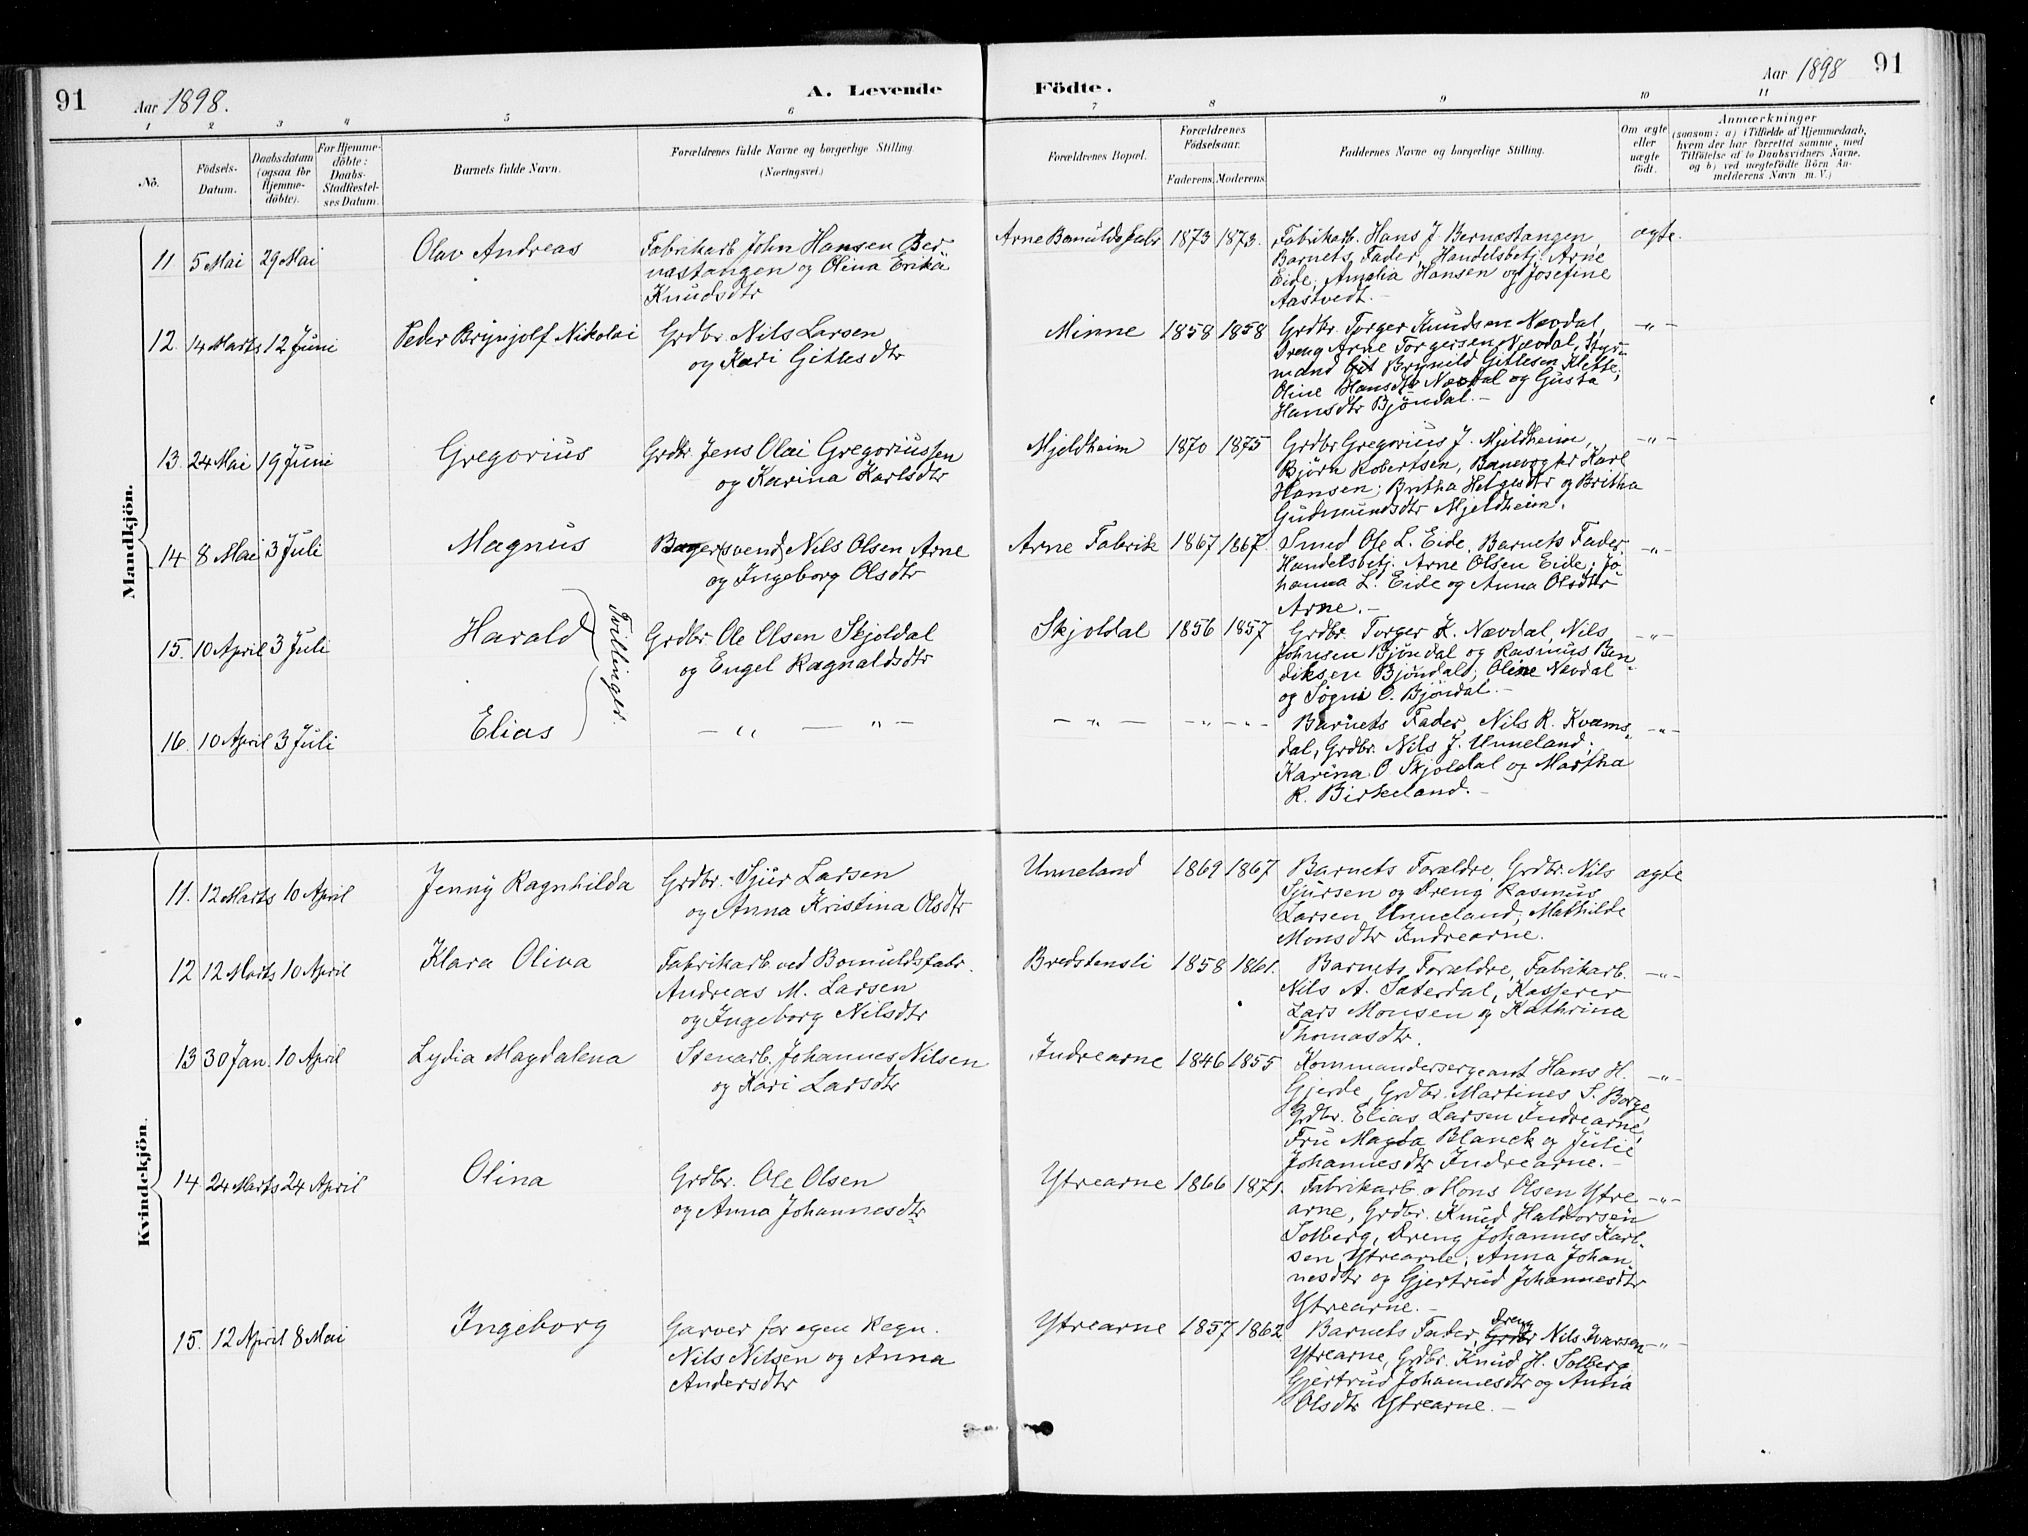 91 Aar 1898. A. Levende Födte. Aar 1898 91
1 2 3 4 5 6 7 8 9 10 11
No.
Födsels-Datum.
Daabsdatum (ogsaa for Hjemmedöbte).
For Hjemmedöbte: Daabs-Stadfæstelses Datum.
Barnets fulde Navn.
Forældrenes fulde Navne og borgerlige Stilling. (Næringsvei.)
Forældrenes Bopæl.
Forældrenes Födselsaar.
Faderens. Moderens.
Faddernes Navne og borgerlige Stilling.
Om ægte eller uægte födt.
Anmærkninger
(saasom: a) i Tilfælde af Hjemmedaab,
hvem der har forrettet samme, med
Tilföielse af to Daabsvidners Navne,
og b) ved uægtefödte Börn An-
melderens Navn m. V.)
Mandkjön.
11 5 Mai 29 Mai Olav Andreas
Fabrikarb. John Hansen Ber
næstangen og Olina Erika
Knudsdtr
Arne Bomuldsfabr 1873 1873.
Fabrikarb. Hans J Bernæstangen,
Barnets Fader, Handelsbetj. Arne
Eide; Amalia Hansen og Josefine
Aastvedt.—
ægte.
12. 14 Marts 12 Juni Peder Brynjolf Nikolai
Grdbr. Nils Larsen
og Kari Gitlesdtr
Minne 1858 1858
Grdbr. Torger Knudsen Nævdal,
Dreng Arne Torgersen Nævdal, Styr-
mand Brynild Gitlesen Klette;
Oline Hansdtr Nævdal og Gusta
Hansdtr Bjöndal.—
—"—
13. 24 Mai 19 Juni Gregorius
Grdbr. Jens Olai Gregoriussen
og Karina Karlsdtr
Mjeldheim 1870 1875
Grdbr Gregorius J. Mjeldheim,
Björn Robertsen, Banevogter Karl
Hansen; Britha Helgesdtr og Britha
Gudmundsdtr Mjeldheim.
—"—
14 8 Mai 3 Juli Magnus
Bager(svend) Nils Olsen Arne
og Ingeborg Olsdtr
Arne Fabrik 1867 1867.
Smed Ole L. Eide, Barnets Fader,
Handelsbetj. Arne Olsen Eide; Jo
hanna L. Eide og Anna Olsdtr
Arne.—
—"—
15. 10 April 3 Juli Harald
Tvillinger.
Grdbr. Ole Olsen Skjoldal
og Engel Ragnaldsdtr
Skjoldal 1856 1857
Grdbr. Torger K. Nævdal, Nils
Johnsen Bjöndal og Rasmus Ben-
diksen Bjöndal; Oline Nævdal
og Sögni O. Bjöndal.—
—"—
16. 10 April 3 Juli Elias
— " — — " —
— " — — " — — " —
Barnets Fader, Nils R. Kvams-
dal, Grdbr. Nils J. Unneland;
Karina O. Skjoldal og Martha
R. Birkeland.—
—"—
Kvindekjön.
11. 12 Marts 10 April Jenny Ragnhilda
Grdbr. Sjur Larsen
og Anna Kristina Olsdtr
Unneland 1869 1867
Barnets Forældre, Grdbr. Nils
Sjursen og Dreng Rasmus
Larsen Unneland, Mathilde
Monsdtr Indrearne.
ægte
12 12 Marts 10 April Klara Oliva
Fabrikarb. ved Bomuldsfabr.
Andreas M. Larsen
og Ingeborg Nilsdtr
Bredstensli 1858 1861.
Barnets Forældre, Fabrikarb.
Nils A. Sæterdal, Kasserer
Lars Monsen og Kathrina
Thomasdtr.
—"—
13 30 Jan. 10 April Lydia Magdalena
Stenarb. Johannes Nilsen
og Kari Larsdtr
Indrearne 1846 1855
Kommandersergeant Hans H.
Gjerde, Grdbr. Martines S. Borge,
Grdbr. Elias Larsen Indrearne,
Fru Magda Blanck og Julie
Johannesdtr Indrearne.—
—"—
14 24 Marts 24 April Olina
Grdbr. Ole Olsen
og Anna Johannesdtr
Ytrearne 1866 1871.
Fabrikarb. Mons Olsen Ytre
arne, Grdbr. Knud Haldorsen
Solberg, Dreng Johannes Karl-
sen Ytrearne; Anna Johan-
nesdtr og Gjertrud Johannesdtr
Ytrearne.—
—"—
15. 12 April 8 Mai Ingeborg
Garver for egen Regn.
Nils Nilsen og Anna
Andersdtr
Ytrearne 1857 1862
Barnets Fader, Dreng Grdbr Nils Ivarsen
Ytrearne, Grdbr. Knud H. Solberg
Gjertrud Johannesdtr og Anna
Olsdtr Ytrearne.—
—"—